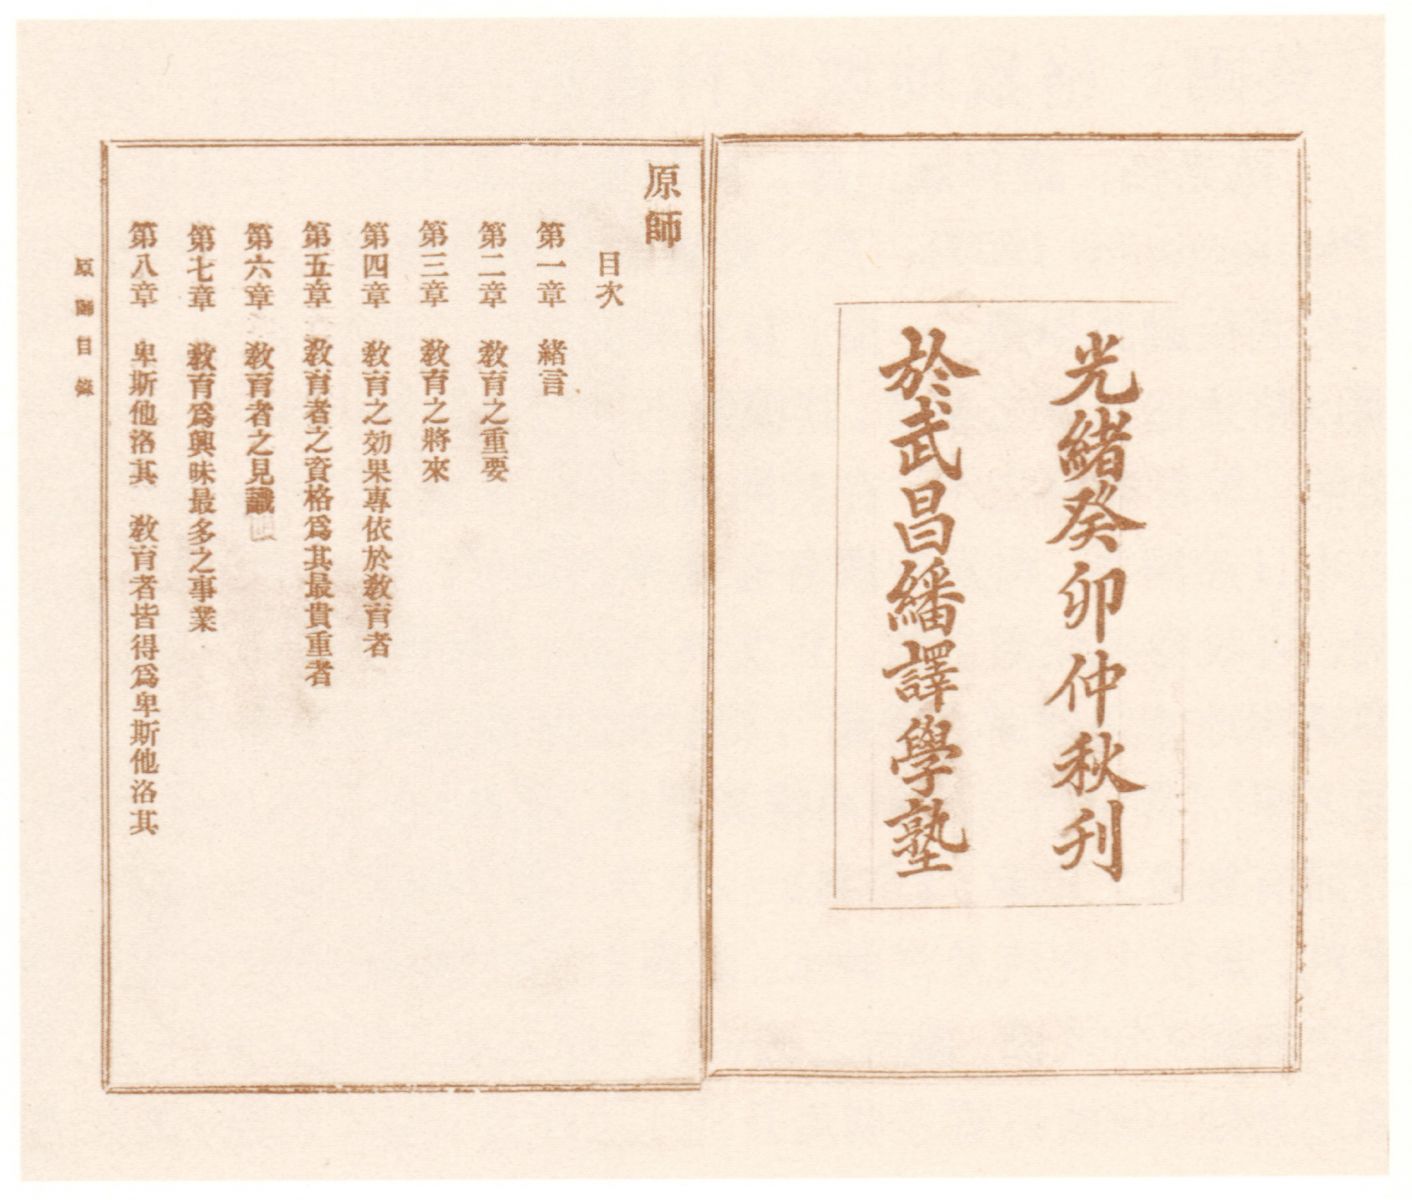 光緒癸卯仲秋刋
於武昌繙譯學塾
原師
目次
第一章　緒言
第二章　敎育之重要
第三章　敎育之將來
第四章　敎育之効果專依於敎育者
第五章　敎育者之資格爲其最貴重者
第六章　敎育者之見識
第七章　敎育爲興味最多之事業
第八章　卑斯他洛其　敎育者皆得爲卑斯他洛其
原師目錄